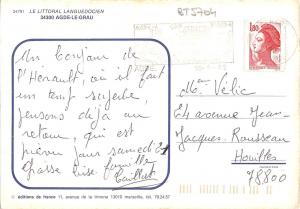 34781 LE LITTORAL LANGUEDOCIEN
34300 AGDE-LE-GRAU
BT5704
1,80
Un bonjour de
l'Hérault, où il fait
un temps superbe,
pensons déjà au
retour, qui est
prévu pour samedi 21
Grosse bise famille
Caillat
Mme Vélic
24 avenue Jean-
Jacques Rousseau
Houilles
78800
© éditions de france 11, avenue de la timone 13010 marseille, tél. 79.24.57